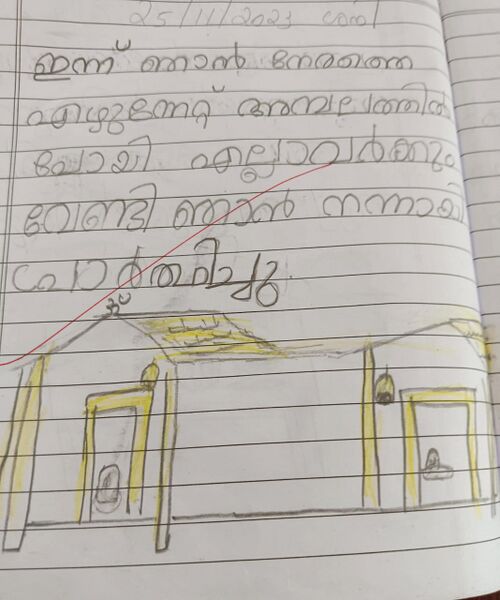 25/11/2023 ശനി
ഇന്ന് ഞാൻ നേരത്തെ
എഴുന്നേറ്റ് അമ്പലത്തിൽ
പോയി എല്ലാവർക്കും
വേണ്ടി ഞാൻ നന്നായി
പ്രാർത്ഥിച്ചു